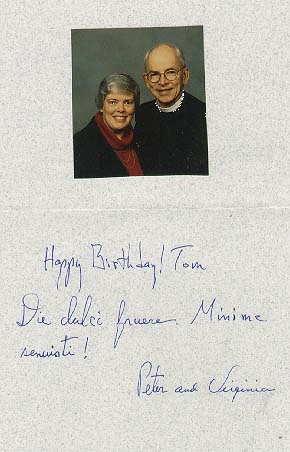 Happy Birthday! Tom
Die dulci fruere. Minime
senuisti!
Peter and Virginia